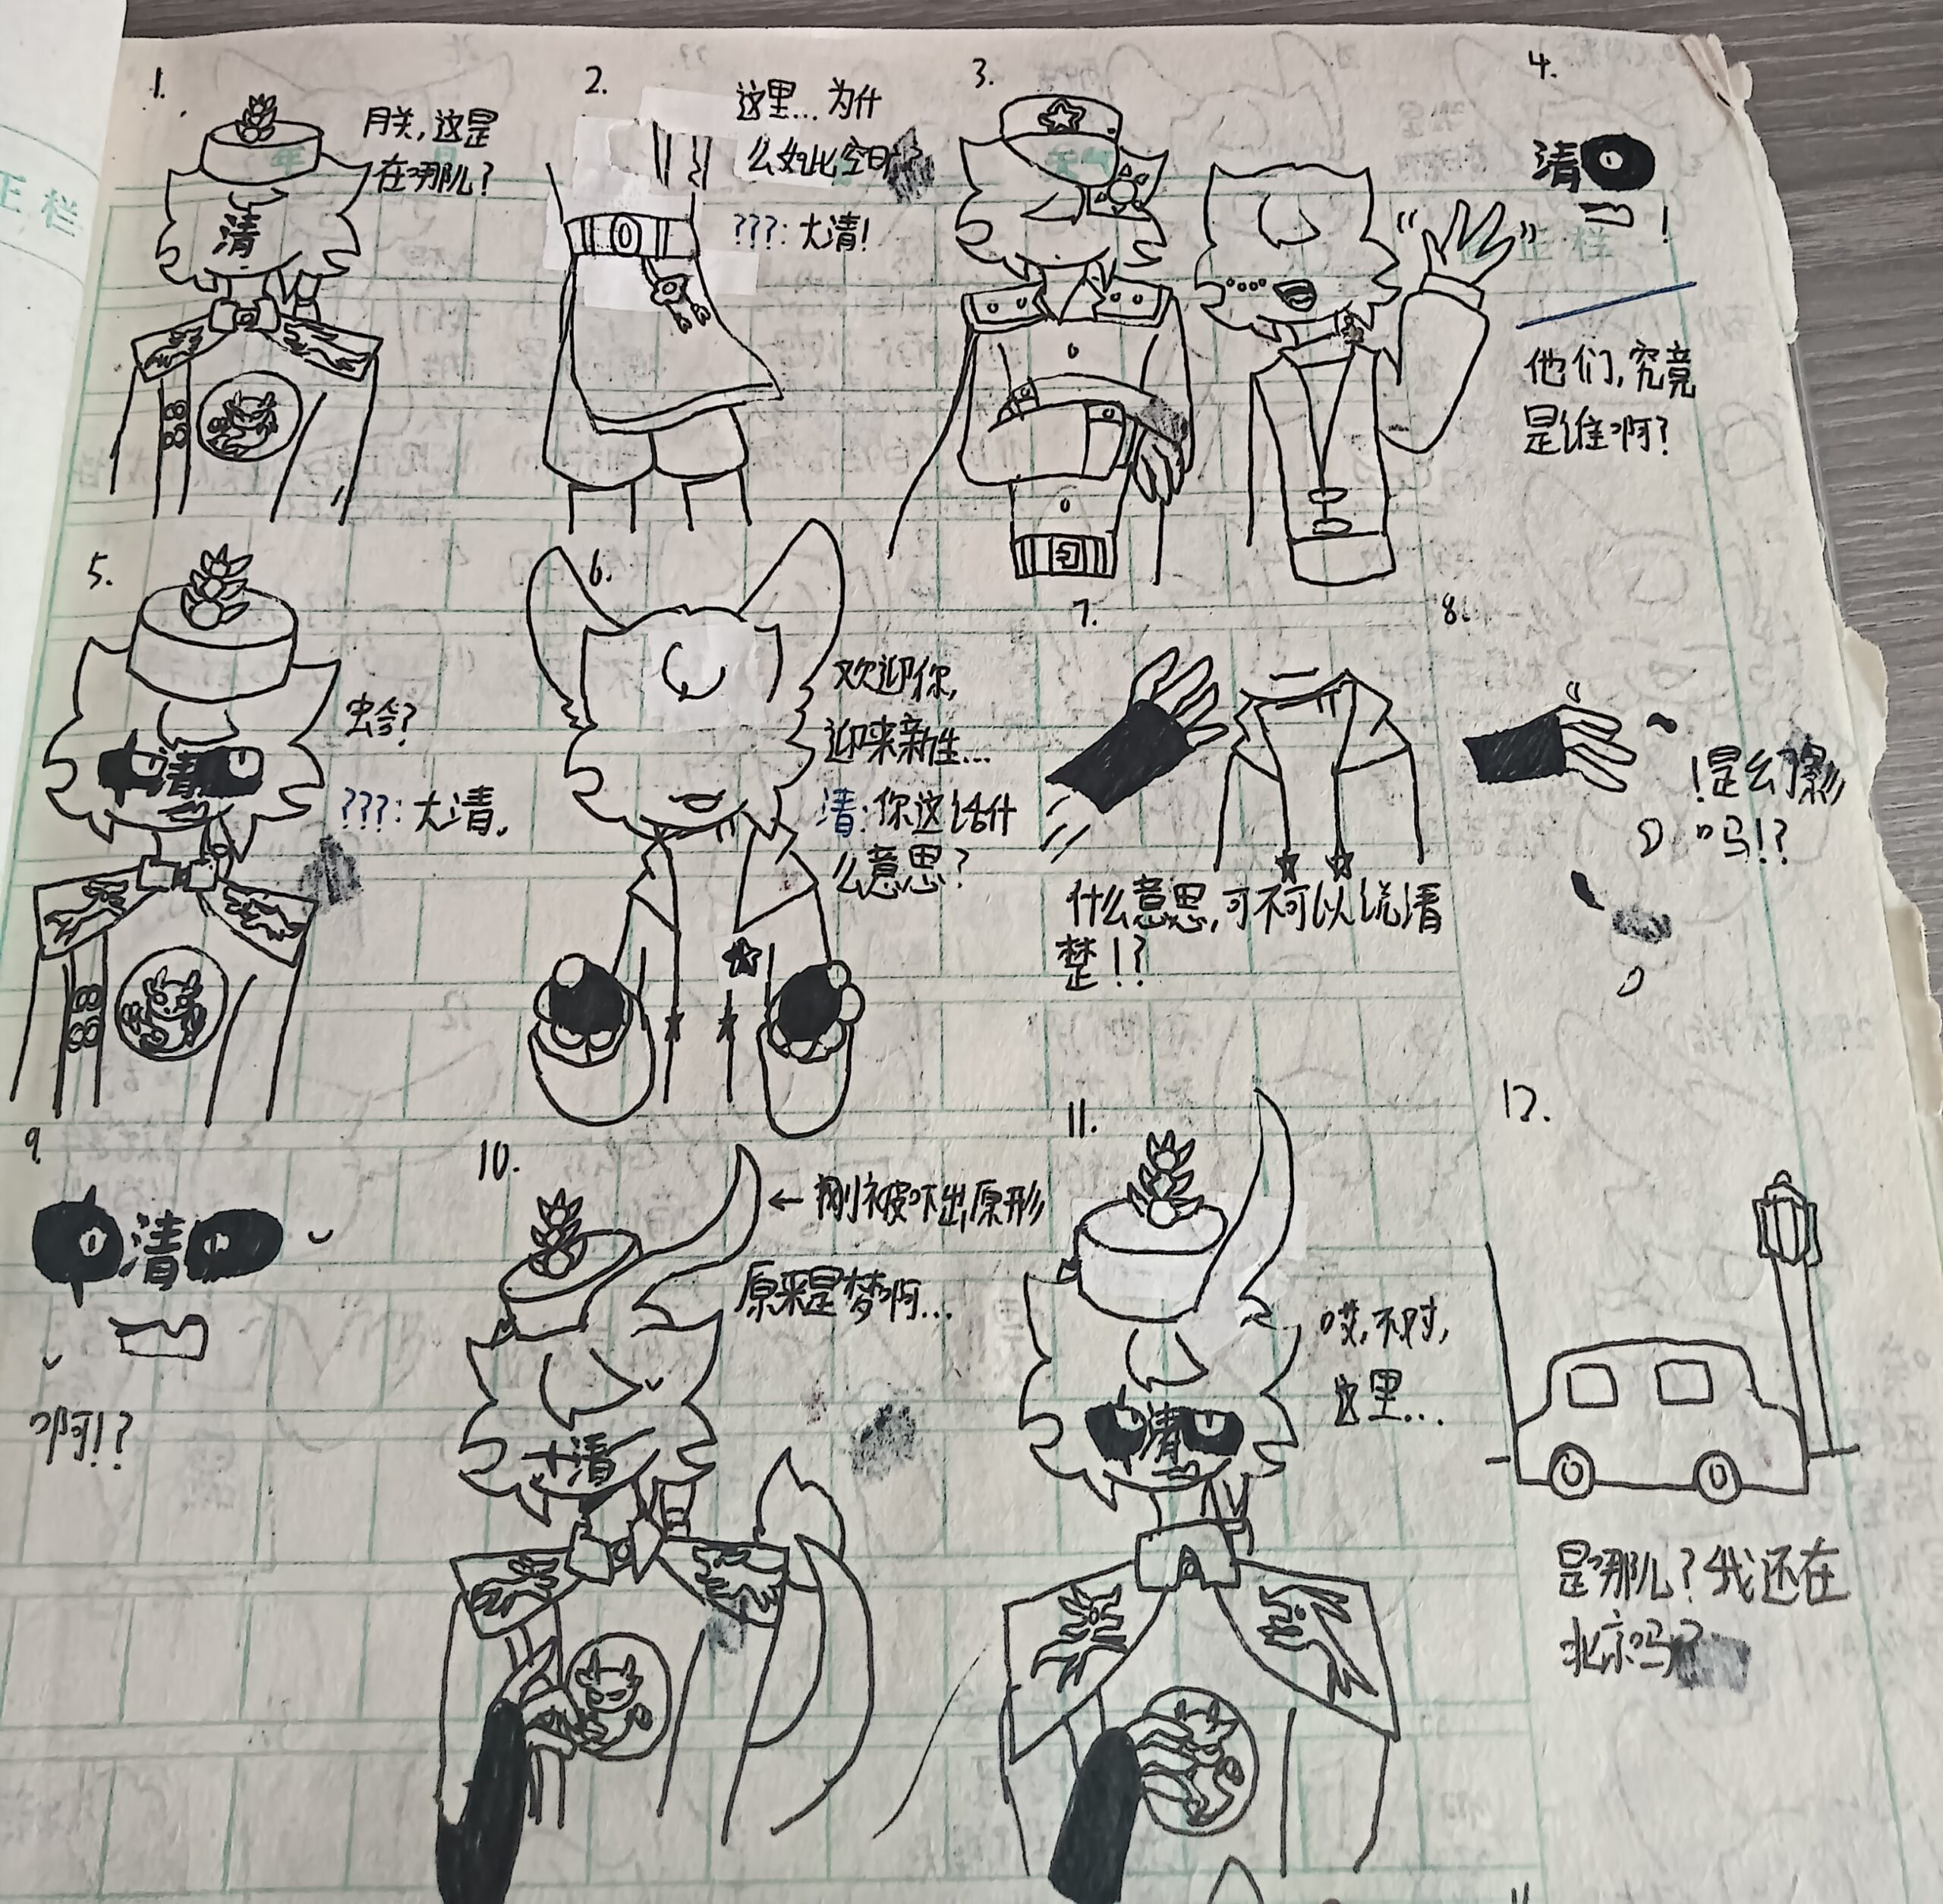 1.
月关,这是
在哪儿?
清
2.
这里...为什
么如此空旷?
???:大清!
3.
4.
清
!
他们,究竟
是谁啊?
5.
清
蛤?
???:大清,
6.
欢迎你,
迎来新生...
清:你这话什
么意思?
7.
什么意思,可不可以说清
楚!?
8.
!是幻影
吗!?
9.
清
啊!?
10.
←刚被吓出原形
原来是梦啊...
清
11.
哎,不对,
这里...
清
12.
是哪儿?我还在
北京吗?